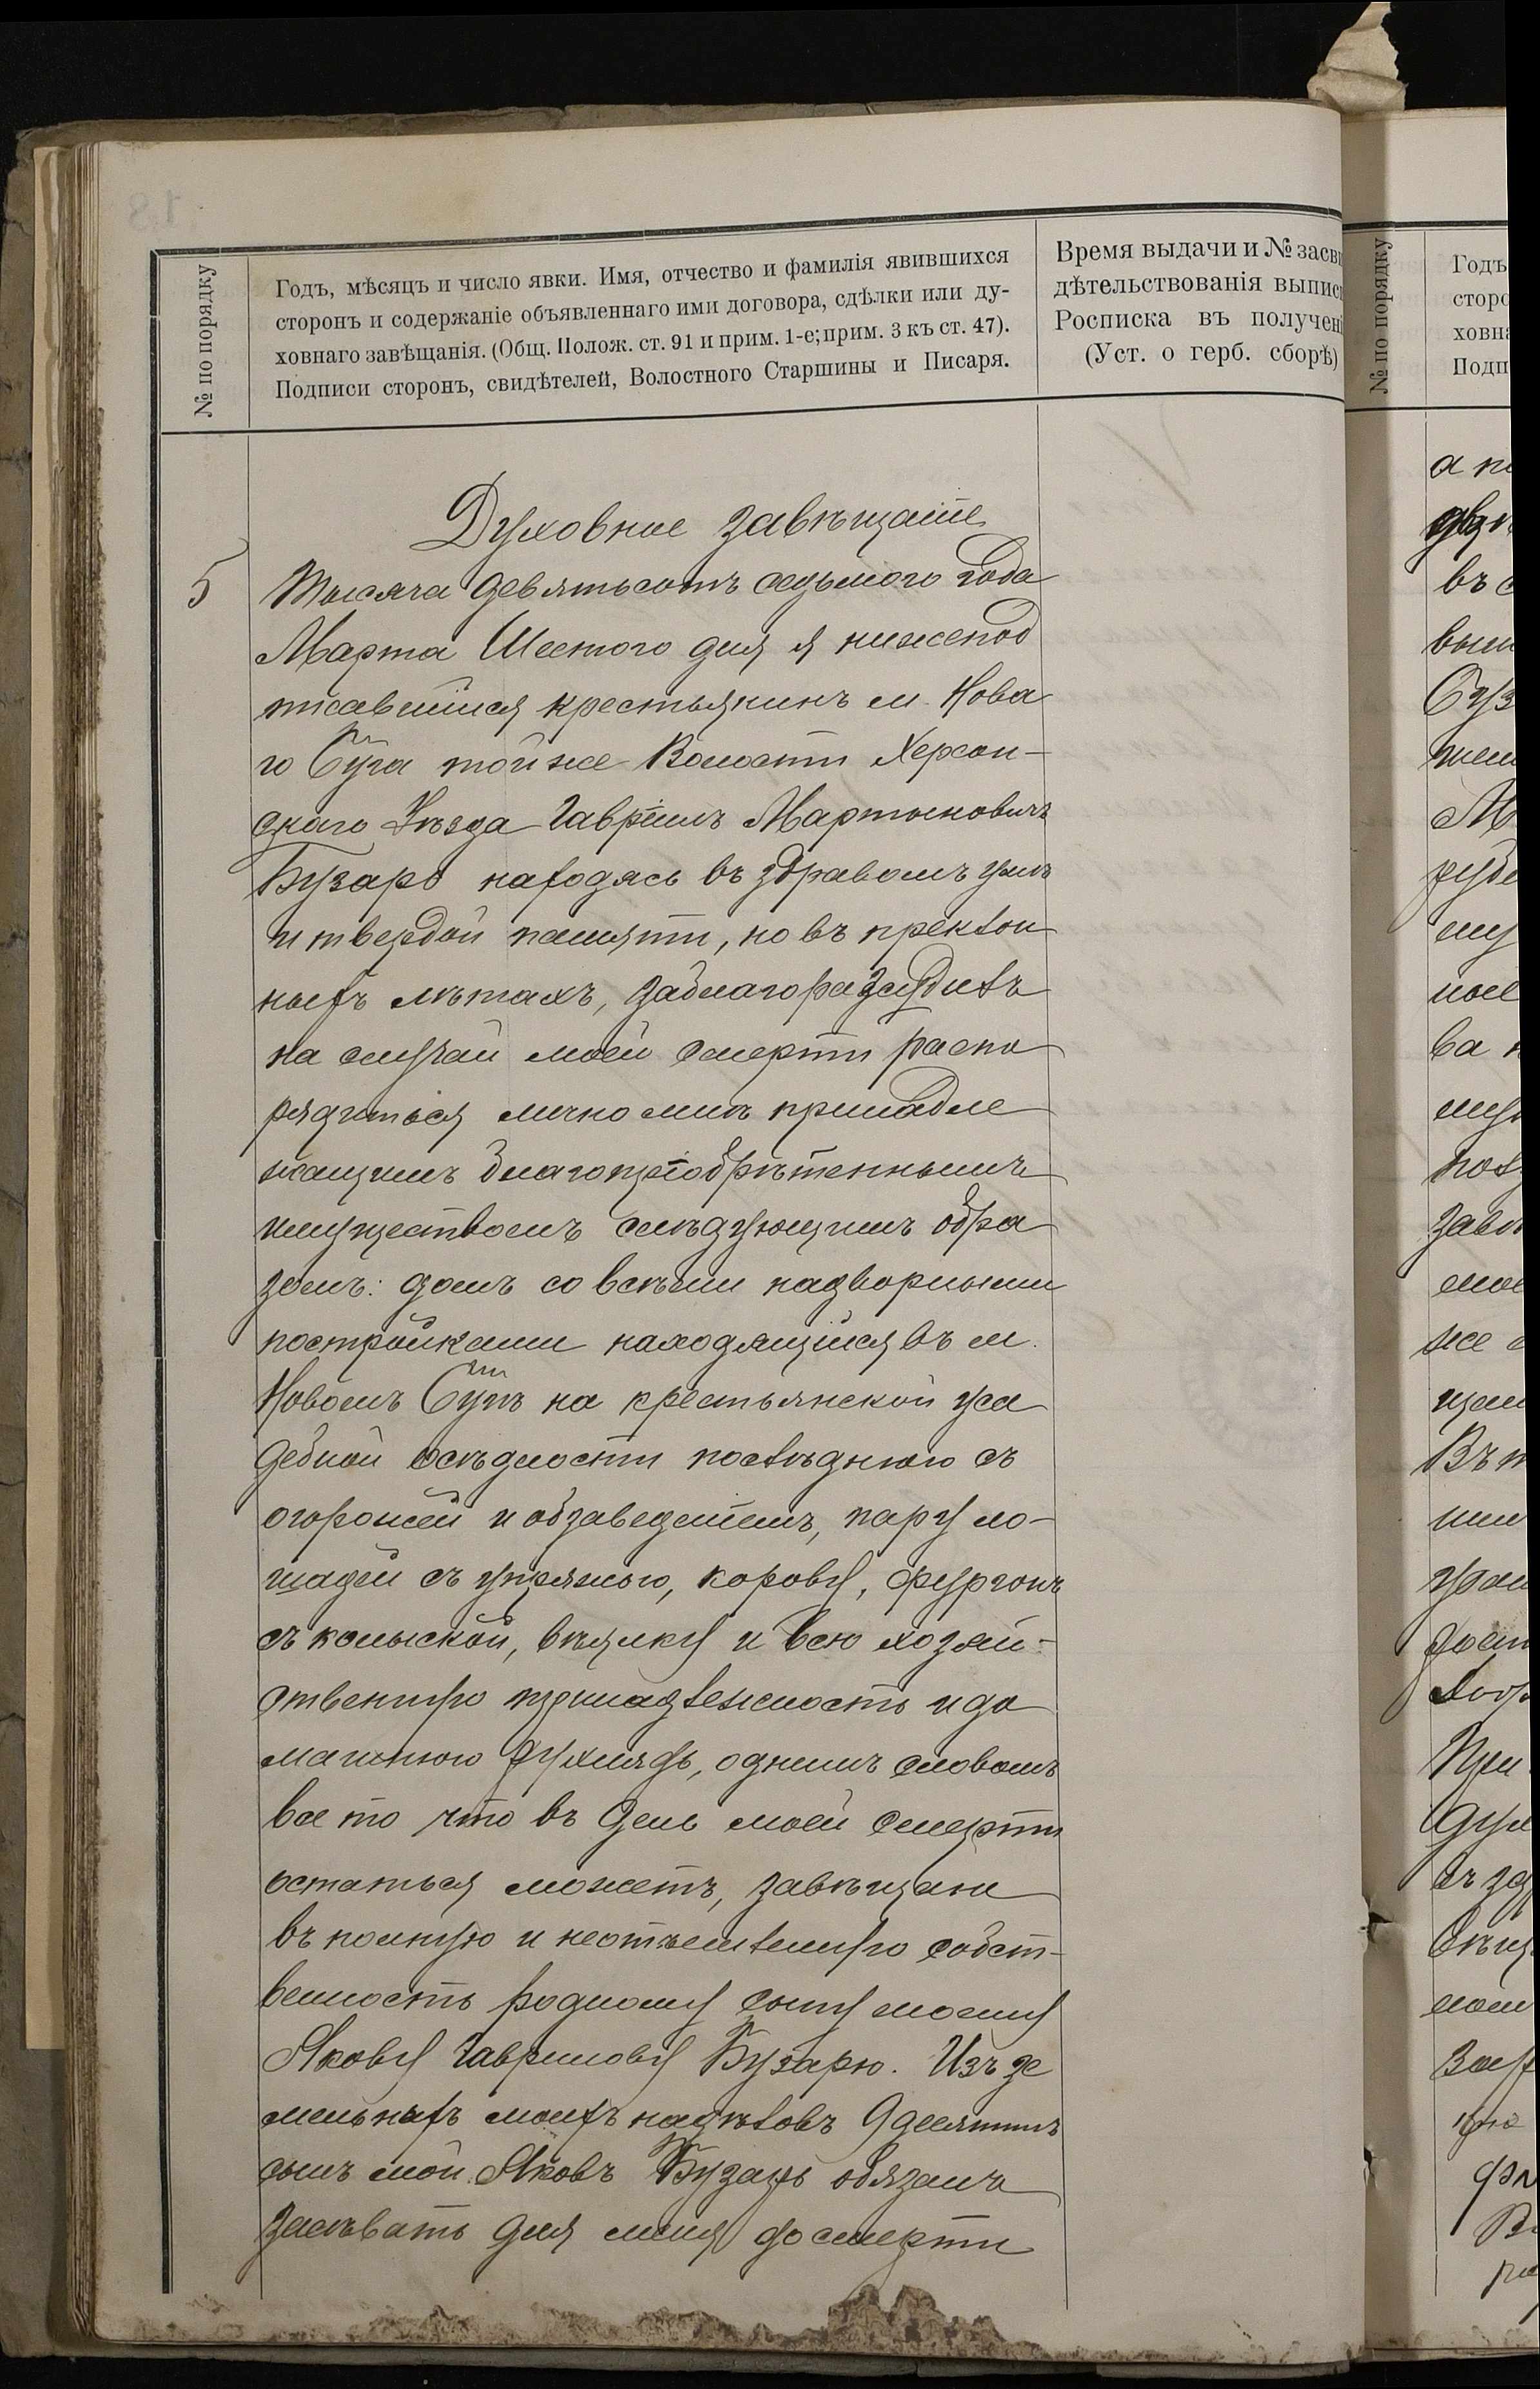 № по порядку
Годъ, мѣсяцъ и число явки. Имя, отчество и фамилія явившихся
сторонъ и содержаніе объявленнаго ими договора, сдѣлки или ду-
ховнаго завѣщанія. (Общ. Полож. ст. 91 и прим. 1-е; прим. 3 къ ст. 47).
Подписи сторонъ, свидѣтелей, Волостного Старшины и Писаря.
Время выдачи и № засви
дѣтельствованія выпис
Росписка въ получен
(Уст. о герб. сборѣ)
Духовное завѣщаніе
5 Тысяча девятьсотъ седьмого года
Марта Шестого дня я нижепод
писавшійся крестьянинъ м. Нова
го Буга той же Волости Херсон-
скаго Уѣзда Гавріилъ Мартыновичъ
Бузарь находясь въ здравомъ умѣ
и твердой памяти, но въ преклон
ныхъ лѣтахъ, заблагоразсудилъ
на случай моей смерти распо
рядиться лично мнѣ принадле
жащимъ благопріобрѣтеннымъ
имуществомъ слѣдующимъ обра
зомъ: домъ со всѣми надворными
постройками находящійся въ м.
Новомъ Бугѣ на крестьянской уса
дебной осѣдлости послѣднюю съ
огорожей и обзаведеніемъ, пару ло-
шадей съ упряжью, корову, фургонъ
съ колыской, вѣялку и всю хозяй-
ственную принадлежность и до
машнюю рухлядь, однимъ словомъ
все то что въ день моей смерти
остаться можетъ, завѣщаю
въ полную и неотъемлемую собст-
венность родному сыну моему
Якову Гаврилову Бузарю. Изъ зе
мельныхъ моихъ надѣловъ 9 десятинъ
сынъ мой Яковъ Бузарь обязанъ
засѣвать для меня до смерти
№ по порядку
Годъ
сторо
ховна
Подп